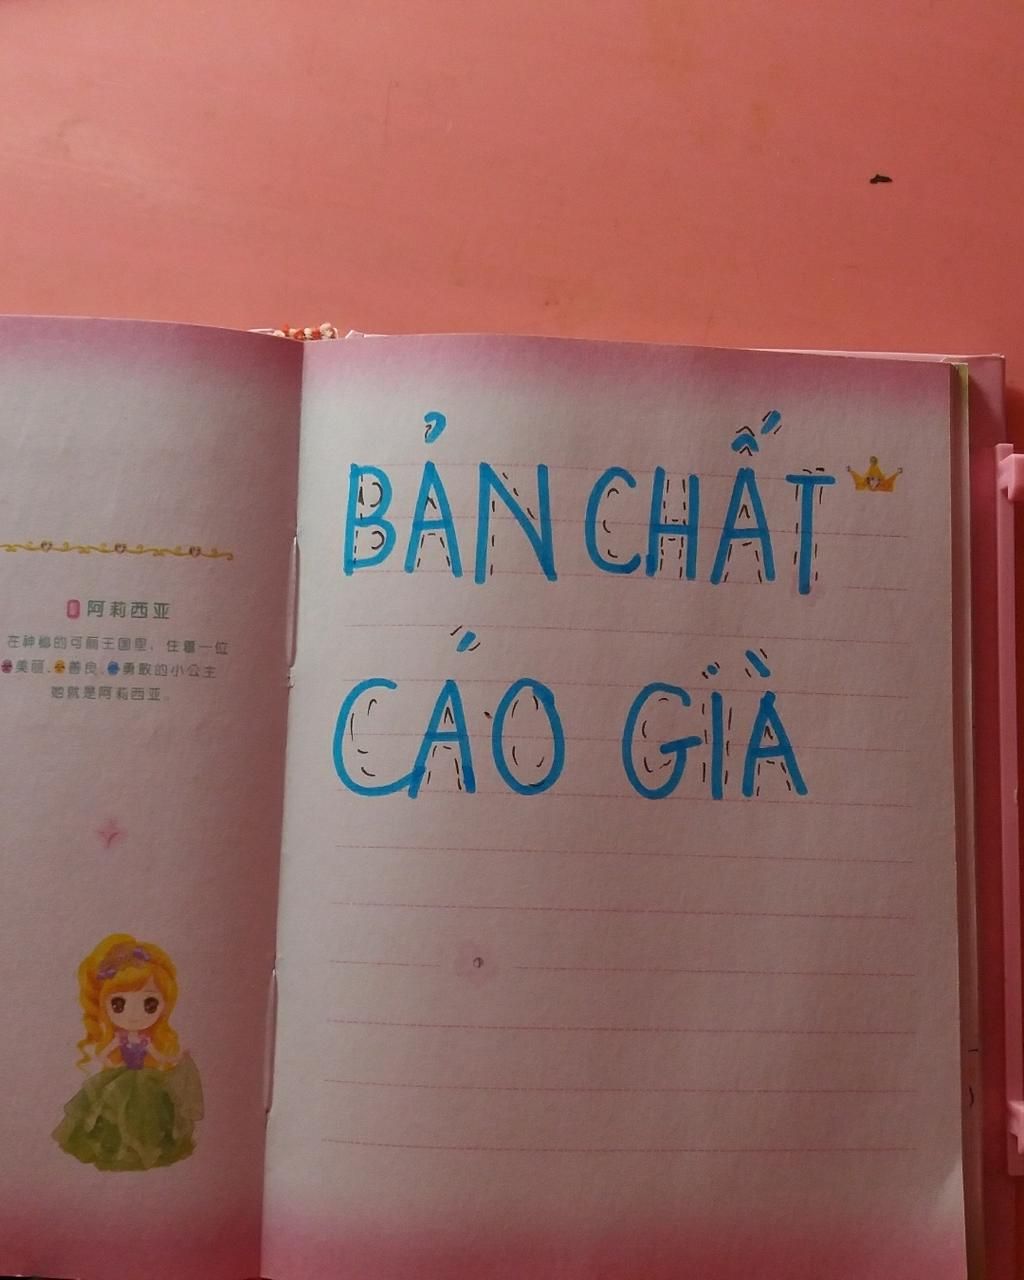 阿莉西亚
在神秘的可丽王国里，住着一位
美丽、善良、勇敢的小公主
她就是阿莉西亚。
BẢN CHẤT
CÁO GIÀ